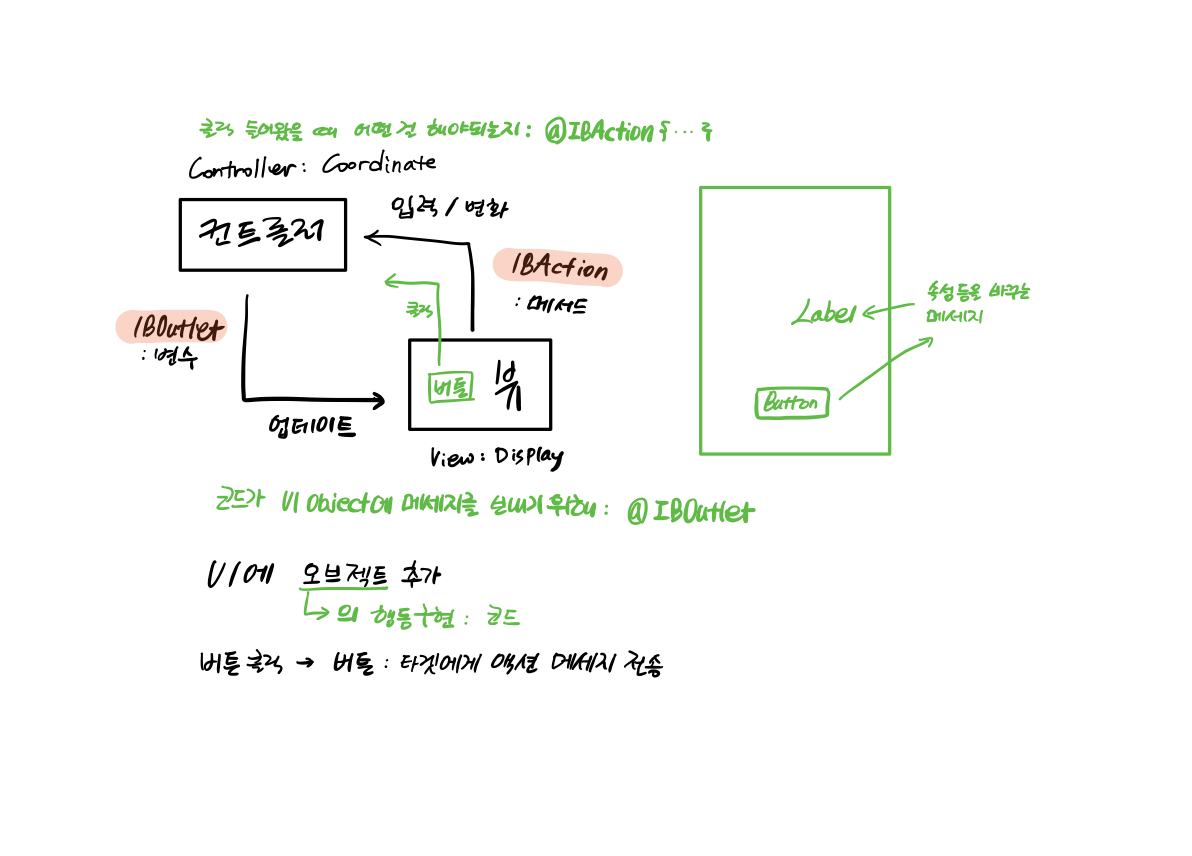 클릭 들어왔을 때 어떤 걸 해야되는지 : @IBAction { ... }
Controller : Coordinate
컨트롤러
입력 / 변화
IBAction
: 메서드
클릭
IBOutlet
: 변수
버튼
뷰
업데이트
View : Display
Label
속성 등을 바꾸는
메세지
Button
코드가 UI Object에 메세지를 보내기 위해 : @IBOutlet
UI에 오브젝트 추가
의 행동구현 : 코드
버튼 클릭 → 버튼 : 타겟에게 액션 메세지 전송